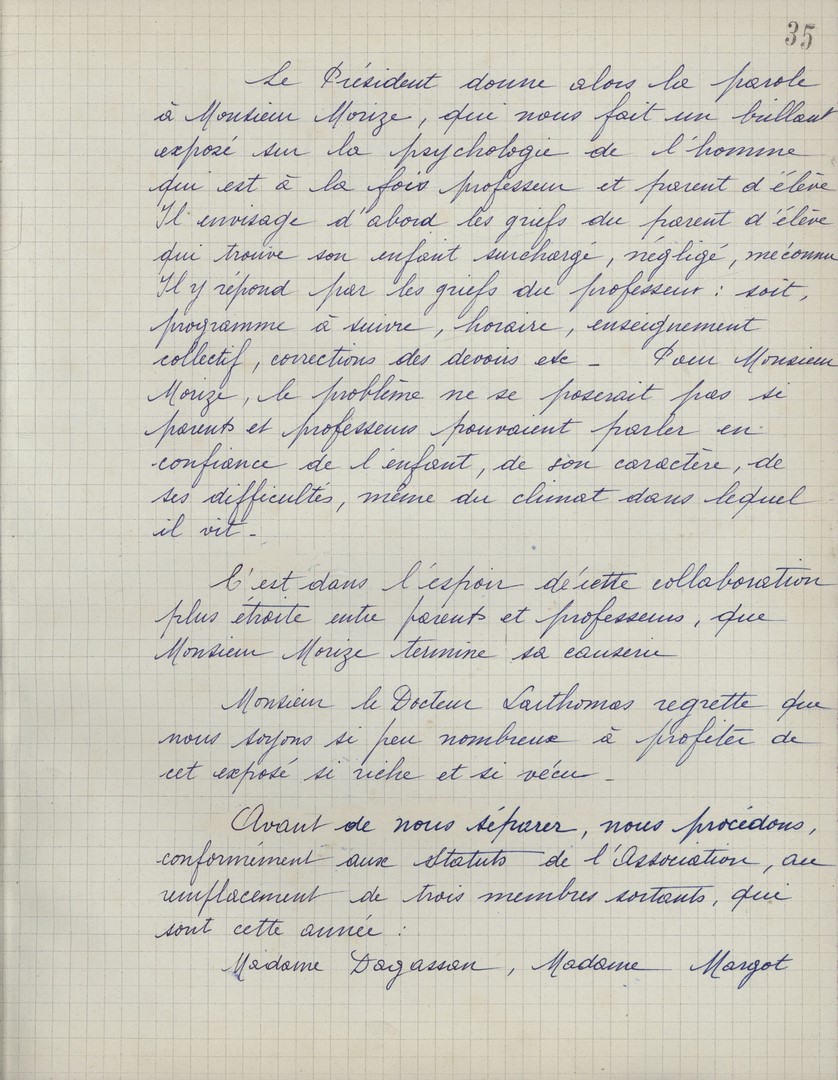 35
Le Président donne alors la parole
à Monsieur Morize, qui nous fait un brillant
exposé sur la psychologie de l'homme
qui est à la fois professeur et parent d'élève
Il envisage d'abord les griefs du parent d'élève
qui trouve son enfant surchargé, négligé, méconnu
Il y répond par les griefs du professeur : soit,
programme à suivre, horaire, enseignement
collectif, corrections des devoirs etc _ Pour Monsieur
Morize, le problème ne se poserait pas si
parents et professeurs pouvaient parler en
confiance de l'enfant, de son caractère, de
ses difficultés, même du climat dans lequel
il vit _
C'est dans l'espoir de cette collaboration
plus étroite entre parents et professeurs, que
Monsieur Morize termine sa causerie
Monsieur le Docteur Larthomas regrette que
nous soyons si peu nombreux à profiter de
cet exposé si riche et si vécu _
Avant de nous séparer, nous procédons,
conformément aux Statuts de l'Association, au
remplacement de trois membres sortants, qui
sont cette année :
Madame Dagassan, Madame Margot